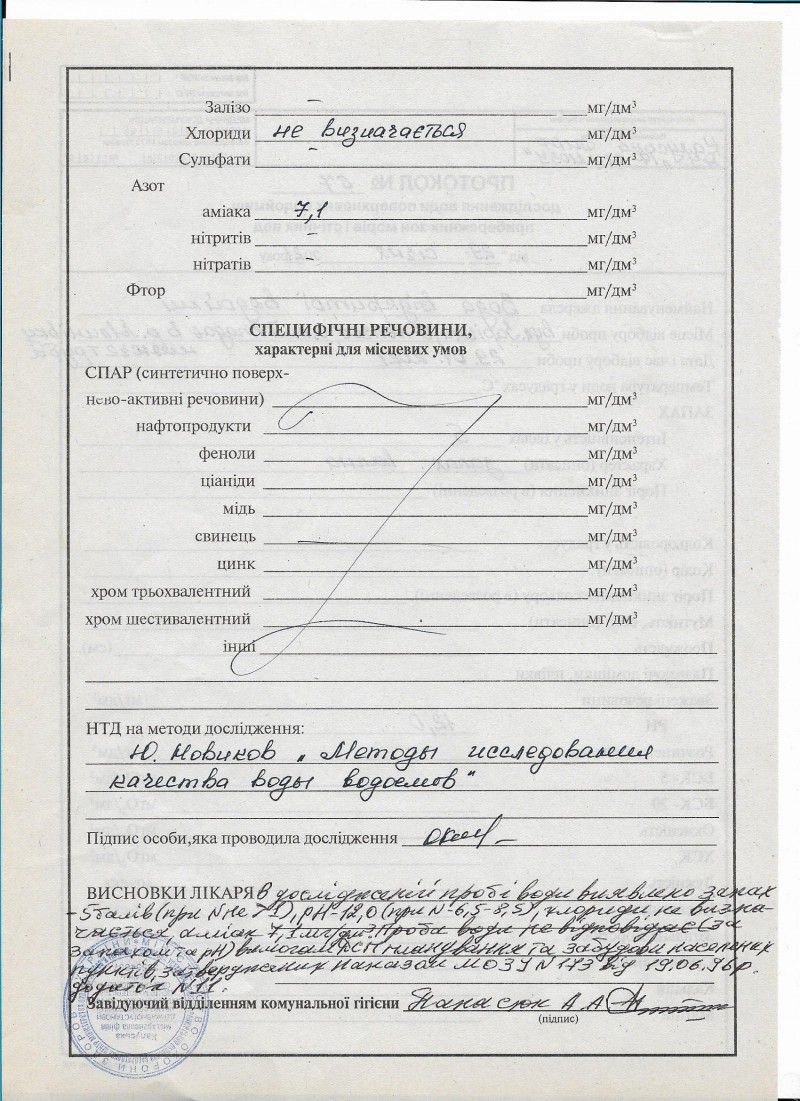 Залізо – мг/дм³
Хлориди не визначається мг/дм³
Сульфати – мг/дм³
Азот
аміака 7,1 мг/дм³
нітритів – мг/дм³
нітратів – мг/дм³
Фтор мг/дм³
СПЕЦИФІЧНІ РЕЧОВИНИ,
характерні для місцевих умов
СПАР (синтетично поверх-
нево-активні речовини) мг/дм³
нафтопродукти мг/дм³
феноли мг/дм³
ціаніди мг/дм³
мідь мг/дм³
свинець мг/дм³
цинк мг/дм³
хром трьохвалентний мг/дм³
хром шестивалентний мг/дм³
інші
НТД на методи дослідження:
Ю. Новиков „Методы исследования
качества воды водоемов"
Підпис особи,яка проводила дослідження
ВИСНОВКИ ЛІКАРЯ В досліджений пробі води виявлено запах
- 5 балів (при N не > 1), рН-12,0 (при N-6,5-8,5), хлориди не визна-
чається аміак 7,1 мг/дм³. Проба води не відповідає (за
запахом та рН) вимогам ДСП планування та забудови населених
пунктів, затверджених наказом МОЗУ N 173 від 19.06.96р.
додаток N11.
Завідуючий відділенням комунальної гігієни Панасюк А А
(підпис)